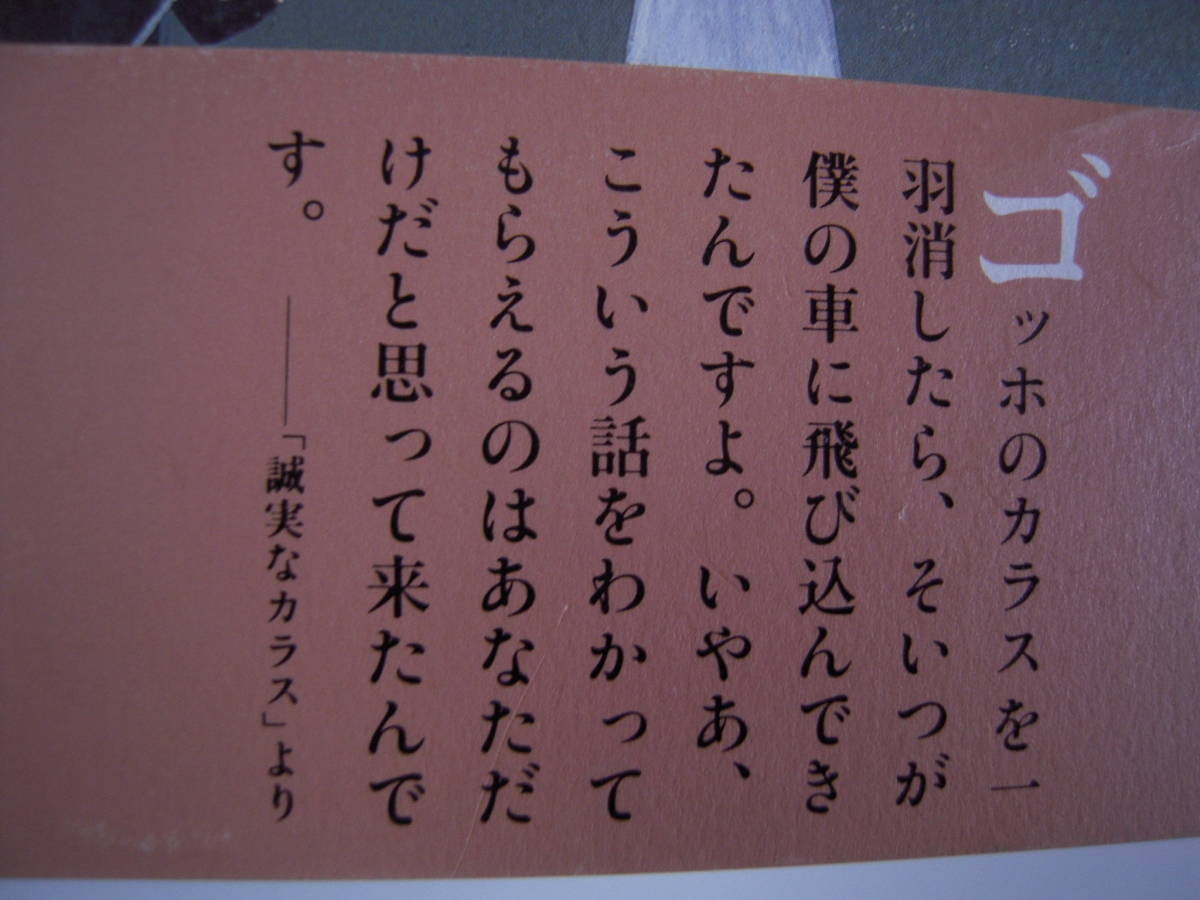 ゴッホのカラスを一
羽消したら、そいつが
僕の車に飛び込んでき
たんですよ。いやあ、
こういう話をわかって
もらえるのはあなただ
けだと思って来たんで
す。――「誠実なカラス」より